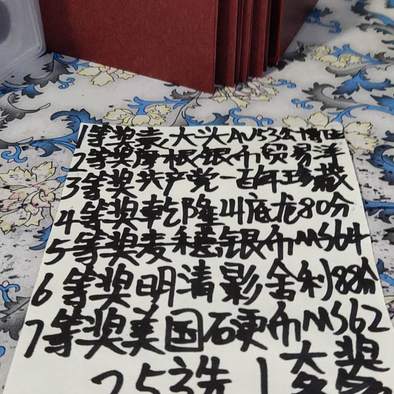 1等奖袁大头AU53
2等奖摩根银币贸易洋
3等奖共产党一百年珍藏
4等奖乾隆 龙80分
5等奖麦穗银币MS64
6等奖明清影舍利88分
7等奖美国硬币MS62
25选1大奖